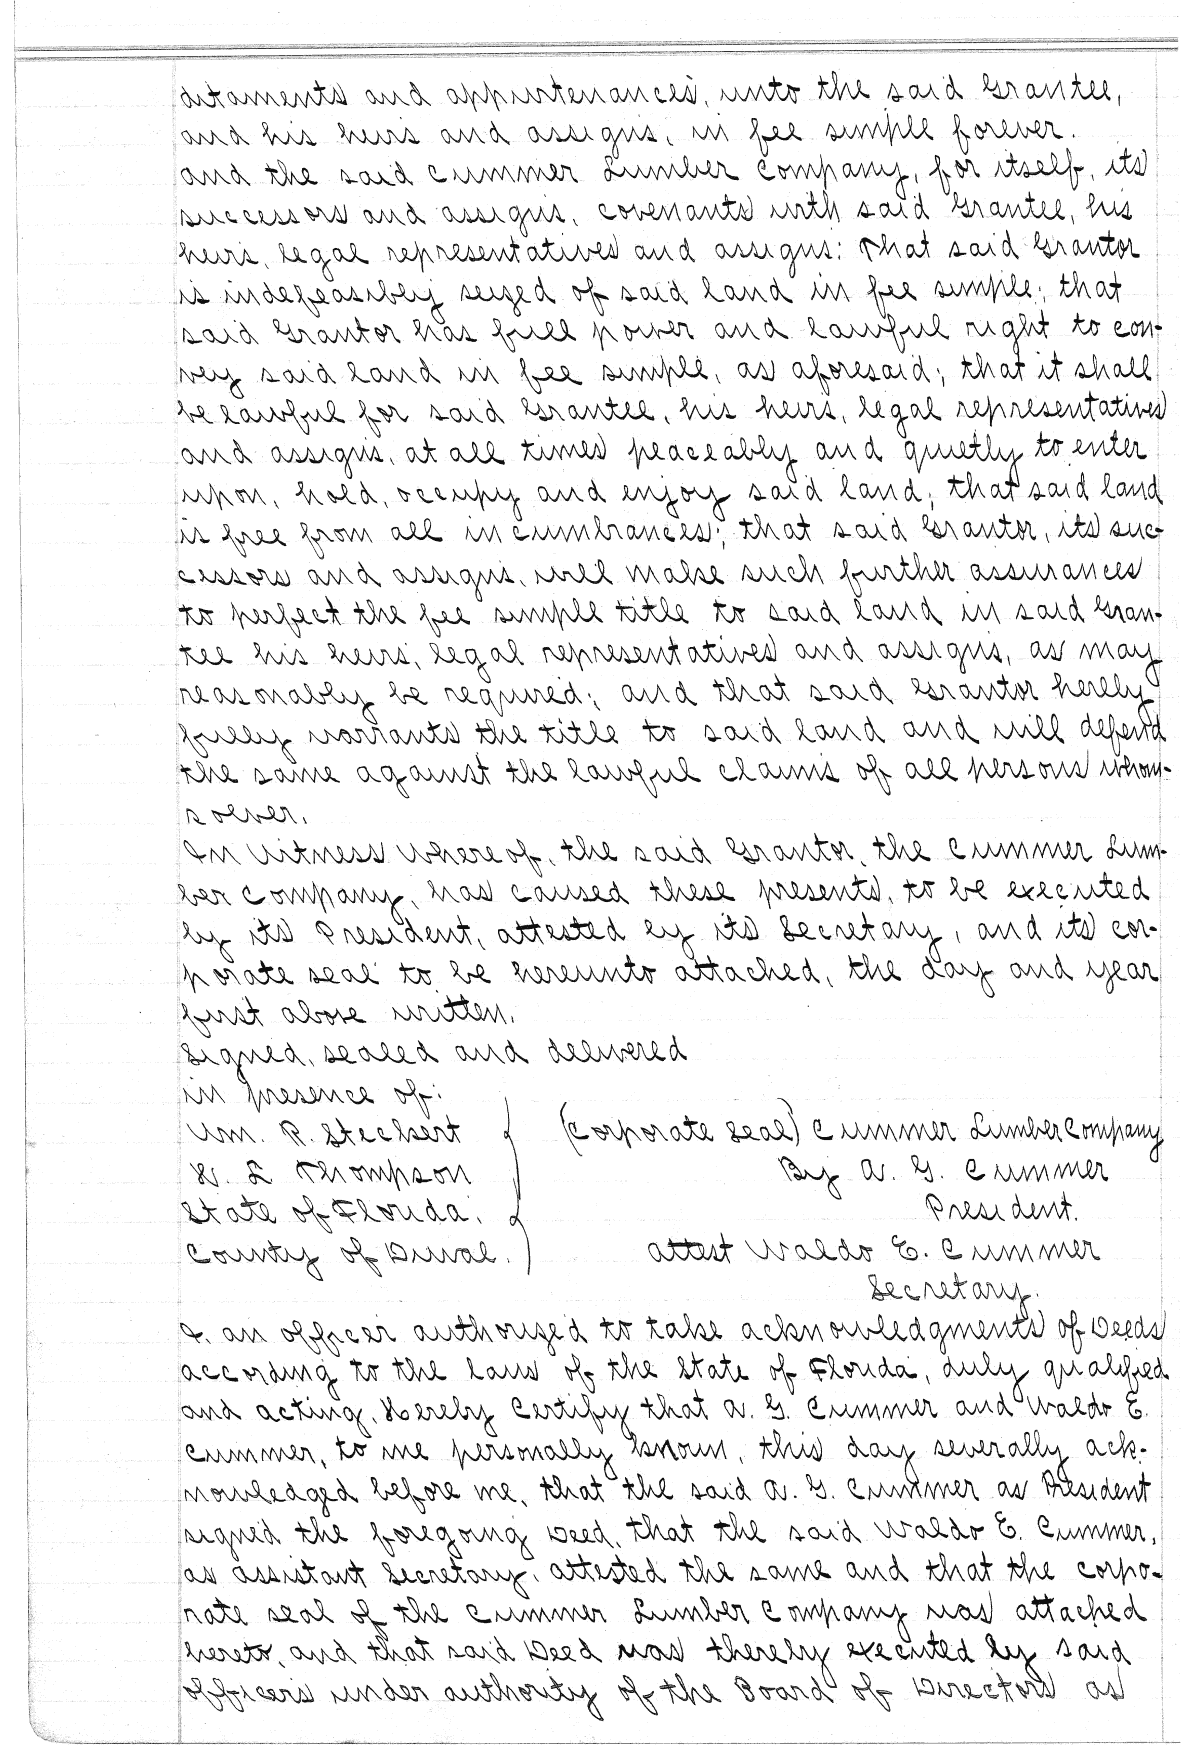 ditaments and appurtenances, unto the said Grantee,
and his heirs and assigns, in fee simple forever.
and the said Cummer Lumber Company, for itself, its
successors and assigns, covenants with said Grantee, his
heirs, legal representatives and assigns: That said Grantor
is indefeasibly seized of said land in fee simple; that
said Grantor has full power and lawful right to con-
vey said land in fee simple, as aforesaid; that it shall
be lawful for said Grantee, his heirs, legal representatives
and assigns, at all times peaceably and quietly to enter
upon, hold, occupy and enjoy said land; that said land
is free from all incumbrances; that said Grantor, its suc-
cessors and assigns, will make such further assurances
to perfect the fee simple title to said land in said Gran-
tee his heirs, legal representatives and assigns, as may
reasonably be required; and that said Grantor hereby
fully warrants the title to said land and will defend
the same against the lawful claims of all persons whom-
soever.
In Witness Whereof, the said Grantor, the Cummer Lum-
ber Company, has caused these presents, to be executed
by its President, attested by its Secretary, and its cor-
porate seal to be hereunto attached, the day and year
first above written.
Signed, sealed and delivered
in presence of:
Wm. P. Steckert (Corporate Seal) Cummer Lumber Company
H. L Thompson By A. G. Cummer
State of Florida, President.
County of Duval. attest Waldo E. Cummer
Secretary.
I, an officer authorized to take acknowledgments of Deeds
according to the laws of the State of Florida, duly qualified
and acting, Hereby Certify that A. G. Cummer and Waldo E.
Cummer, to me personally known, this day severally ack-
nowledged before me, that the said A. G. Cummer as President
signed the foregoing Deed, that the said Waldo E. Cummer,
as assistant Secretary, attested the same and that the corpo-
rate seal of the Cummer Lumber Company was attached
hereto, and that said Deed was thereby executed by said
officers under authority of the Board of Directors as